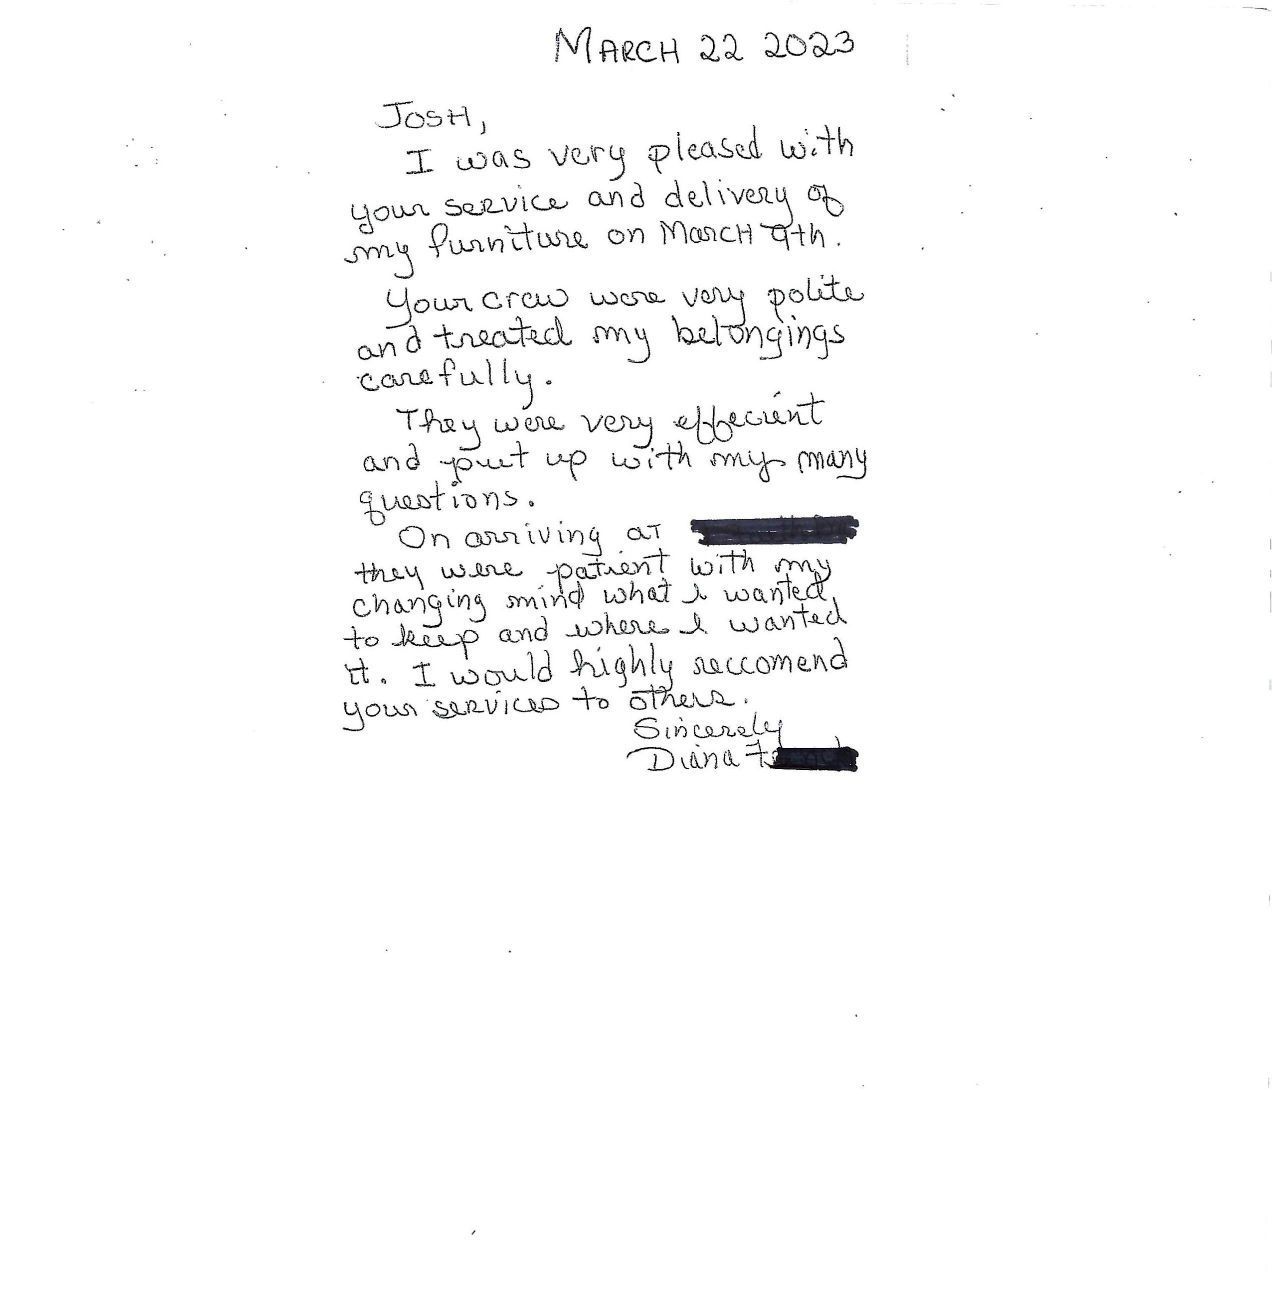 MARCH 22 2023
JOSH,
I was very pleased with
your service and delivery of
my furniture on MARCH 9th.
Your crew were very polite
and treated my belongings
carefully.
They were very effecient
and put up with my many
questions.
On arriving at
they were patient with my
changing mind what I wanted
to keep and where I wanted
it. I would highly reccomend
your services to others.
Sincerely
Diana